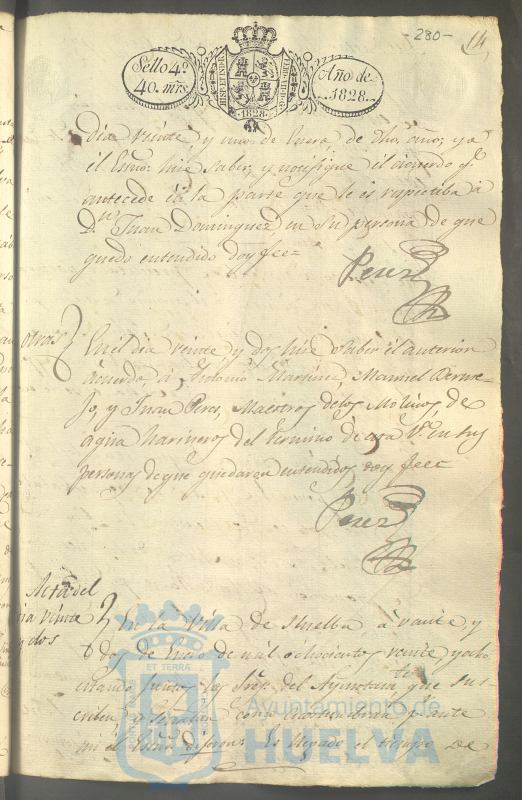 -280- 14
Sello 4º
40. mrs.
HISPET IND R
1828
Año de
1828.
Dia veinte y uno de Enero, de dho. año; yo
el Esno. hice saber, y notifiqué el acuerdo qe.
antecede en la parte que le es respectiba á
Dn. Juan Dominguez en su persona de que
quedo entendido doy fee=
Perez
otras En el dia veinte y dos hice saber el anterior
acuerdo á Antonio Martinez, Manuel Berme-
jo, y Juan Peres, Maestros delos Molinos de
agua harineros del termino de esta Va. en sus
personas de que quedaron entendidos doy fee=
Perez
Acta del
dia veinte
y dos
En la Villa de Huelba á veinte y
dos de Enero de mil ochocientos veinte y ocho
estando juntos los Sres. del Ayuntamto. que sus
criben y señalan como acostumbran p. ante
mi el Esno. dijeron: Es llegado el tiempo de
ET TERRA
Ayuntamiento de
HUELVA